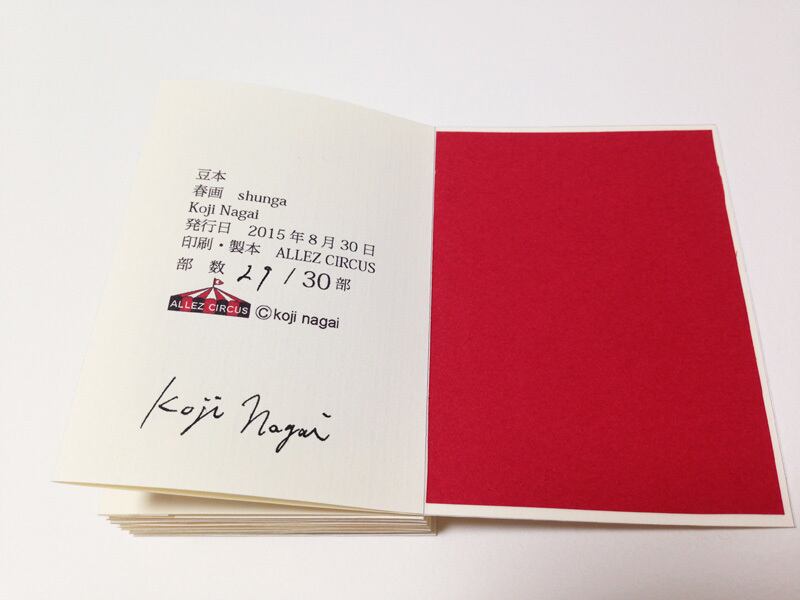 豆本
春画　shunga
Koji Nagai
発行日　2015年8月30日
印刷・製本　ALLEZ CIRCUS
部　数　29 / 30部
ALLEZ CIRCUS
©koji nagai
Koji Nagai